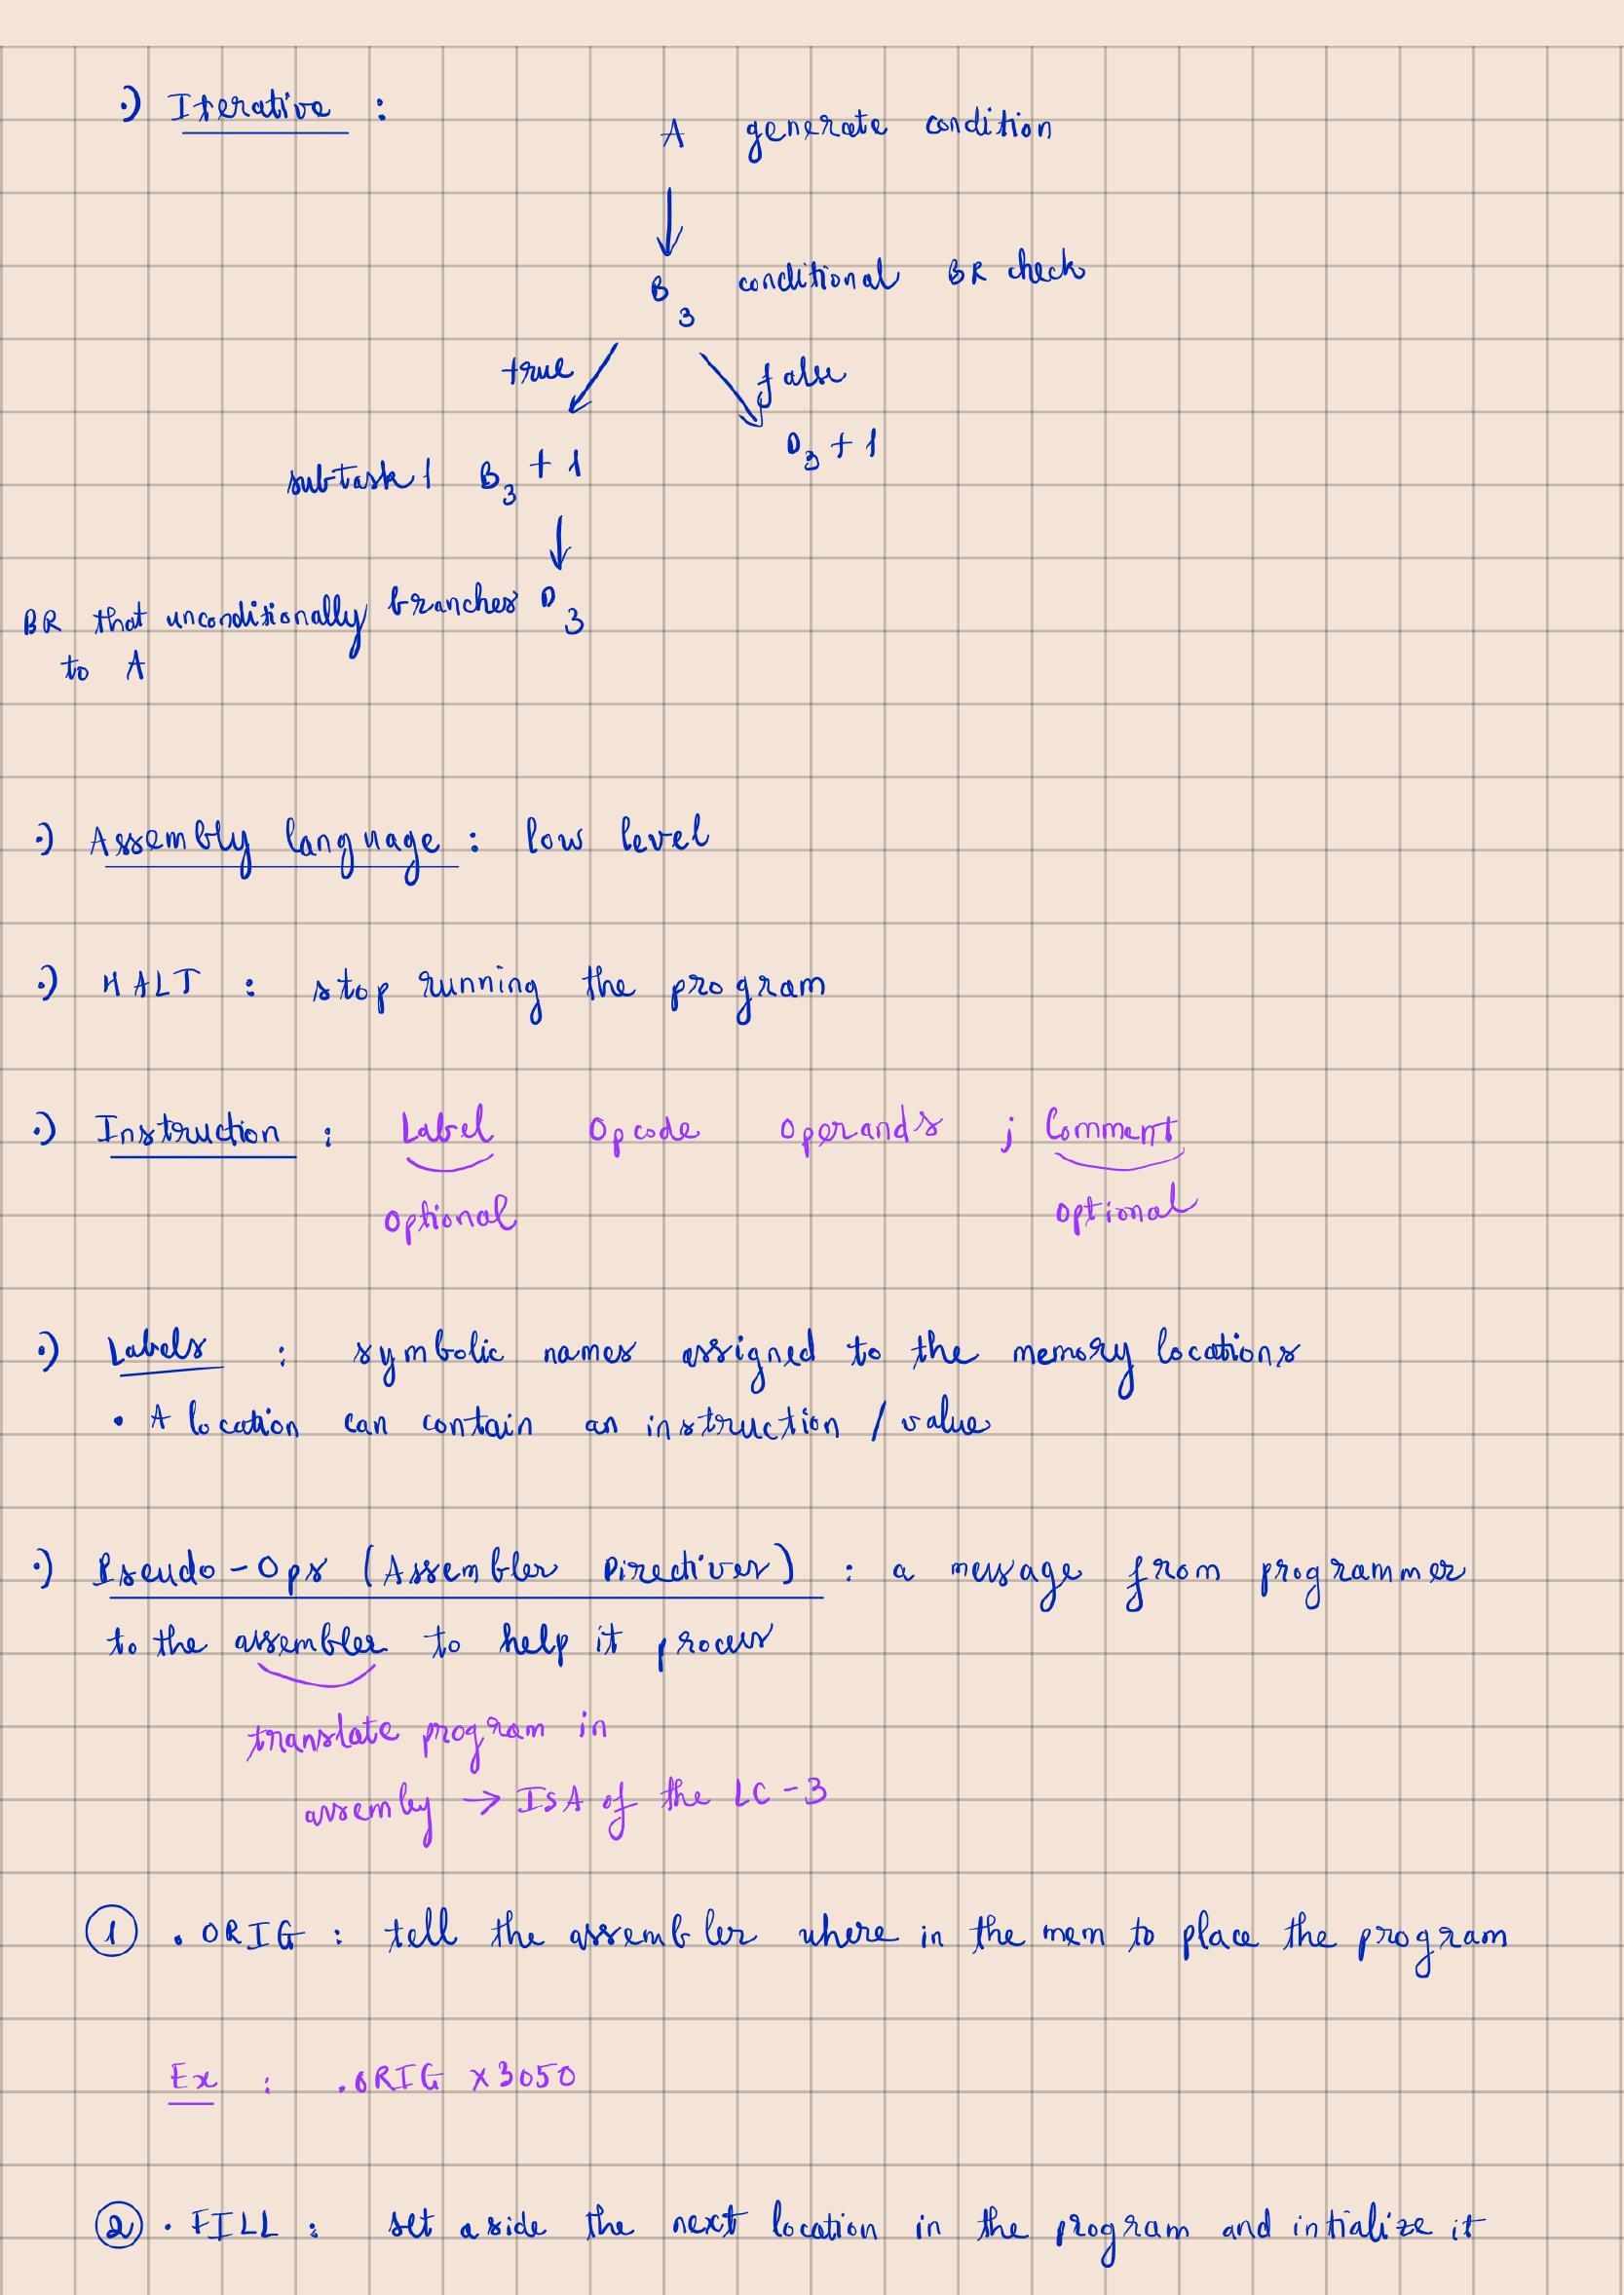 ·) Iterative :
A generate condition
B3 conditional BR check
true false
D3 + 1
subtask 1 B3 + 1
BR that unconditionally branches D3
to A
·) Assembly language : low level
·) HALT : stop running the program
·) Instruction : Label Opcode Operands ; Comment
Optional optional
·) Labels : symbolic names assigned to the memory locations
• A location can contain an instruction / value
·) Pseudo-Ops (Assembler Directives) : a message from programmer
to the assembler to help it process
translate program in
assembly → ISA of the LC-3
① .ORIG : tell the assembler where in the mem to place the program
Ex : .ORIG x3050
② .FILL : set aside the next location in the program and intialize it